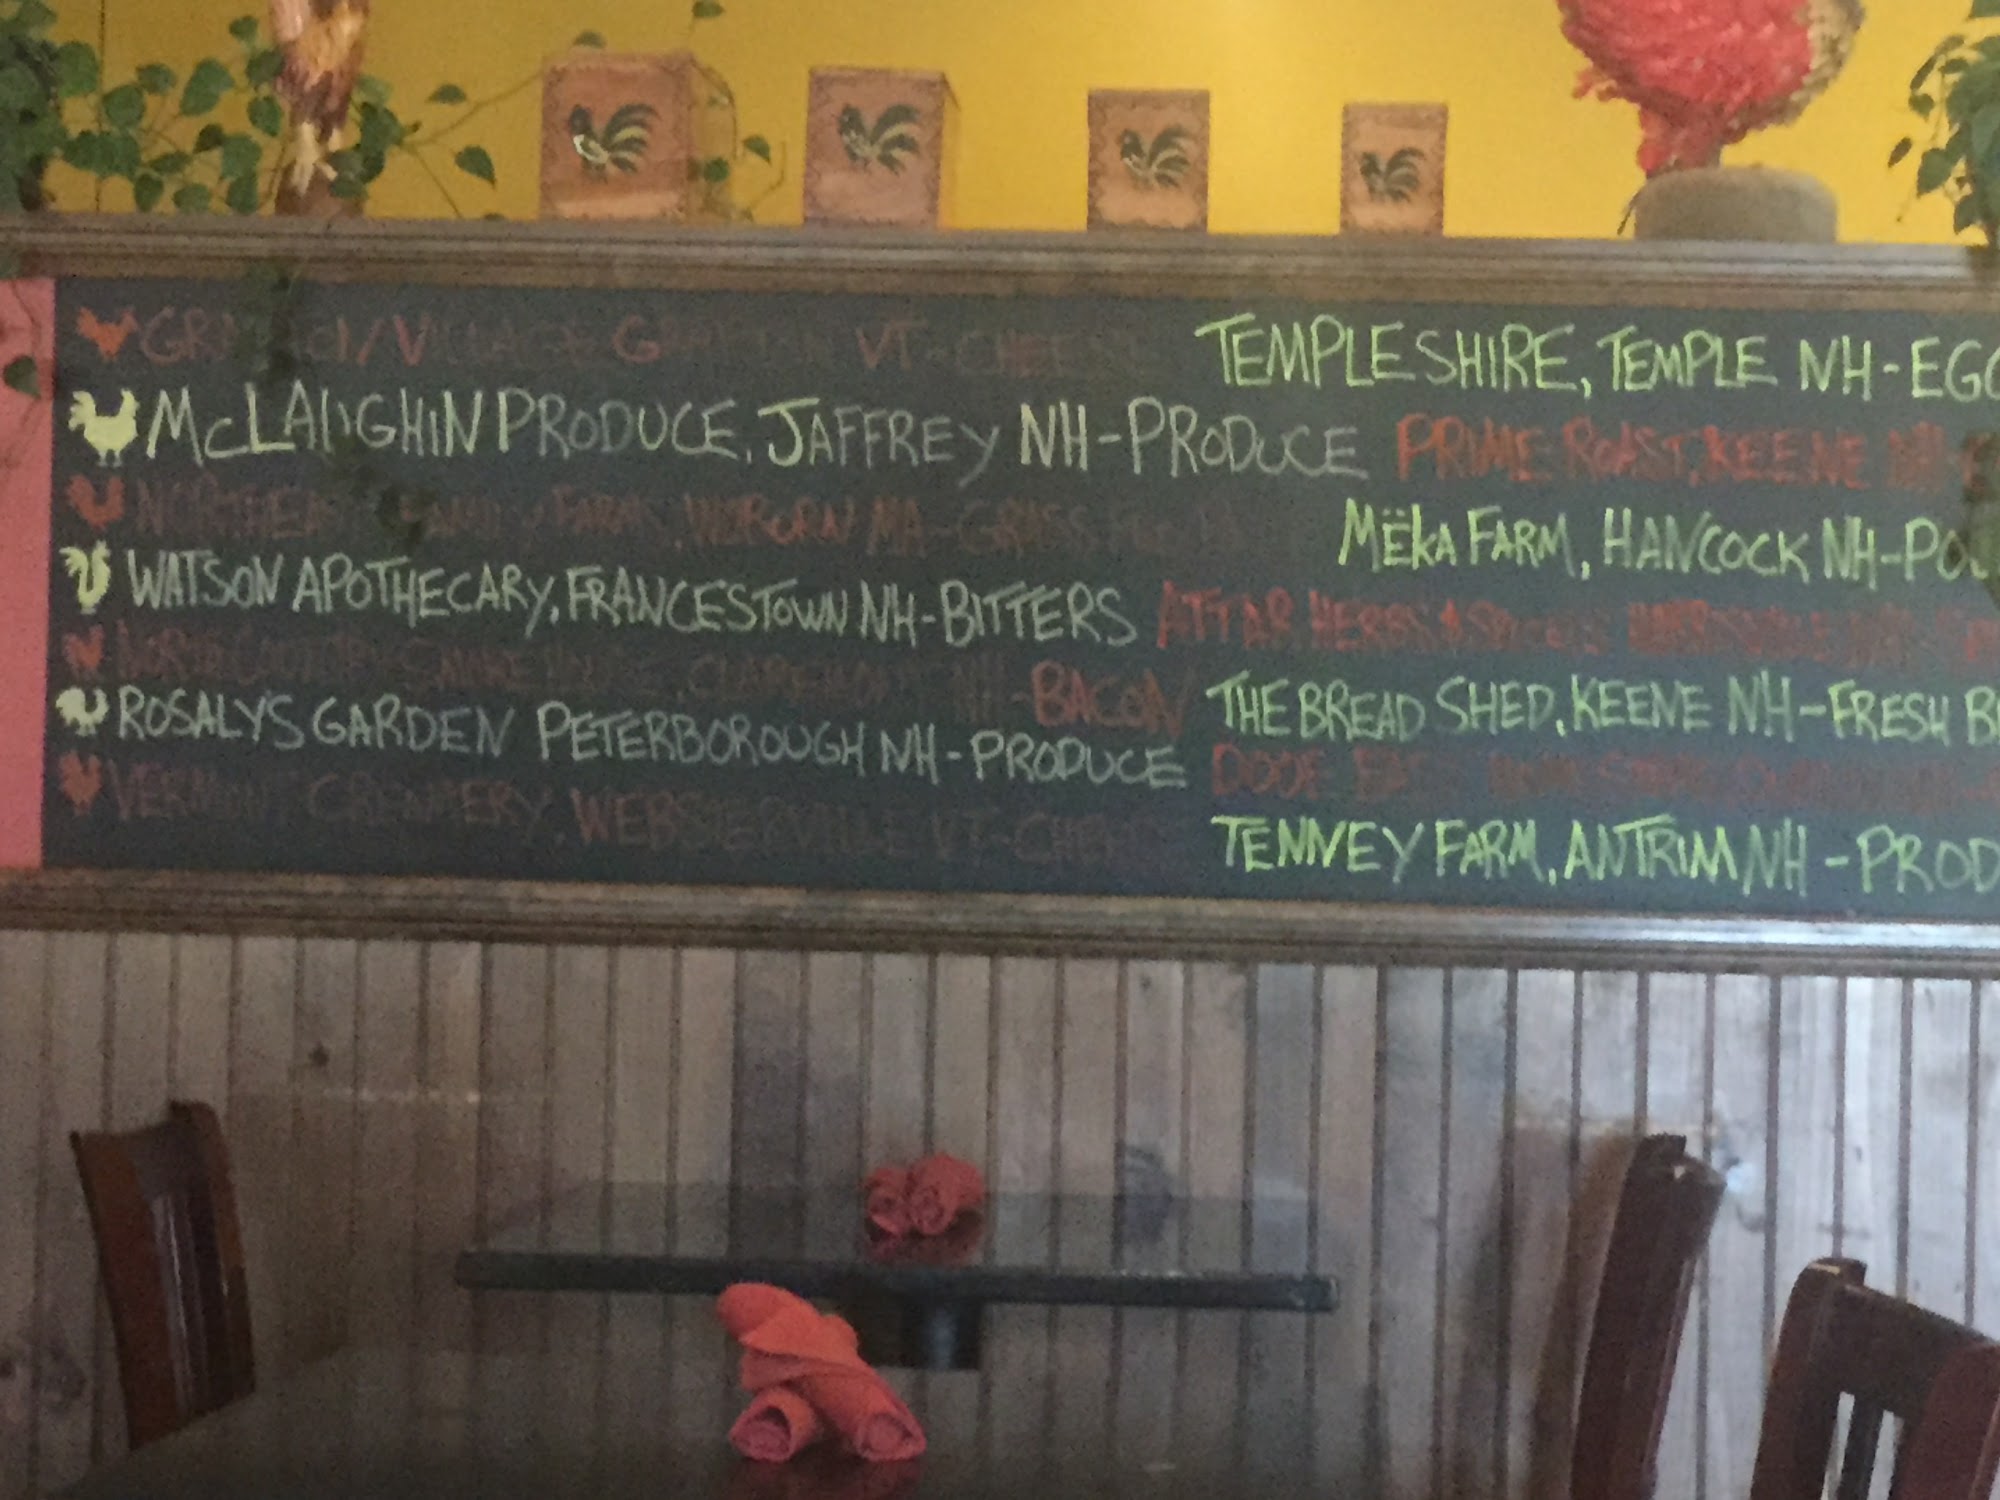 VT-CHEESE
McLAUGHIN PRODUCE, JAFFREY NH-PRODUCE
FARMS, MA-GRASS
WATSON APOTHECARY, FRANCESTOWN NH-BITTERS
NORTH COUNTRY SMOKE HOUSE, CLAREMONT NH-BACON
ROSALY'S GARDEN PETERBOROUGH NH-PRODUCE
VERMONT CREAMERY, WEBSTERVILLE VT-CHEESE
TEMPLESHIRE, TEMPLE NH-EGG
PRIME ROAST, KEENE NH-
MËKA FARM, HANCOCK NH-PO
ATTAR HERBS & SPICES
THE BREAD SHED, KEENE NH-FRESH B
TENNEY FARM, ANTRIM NH-PROD